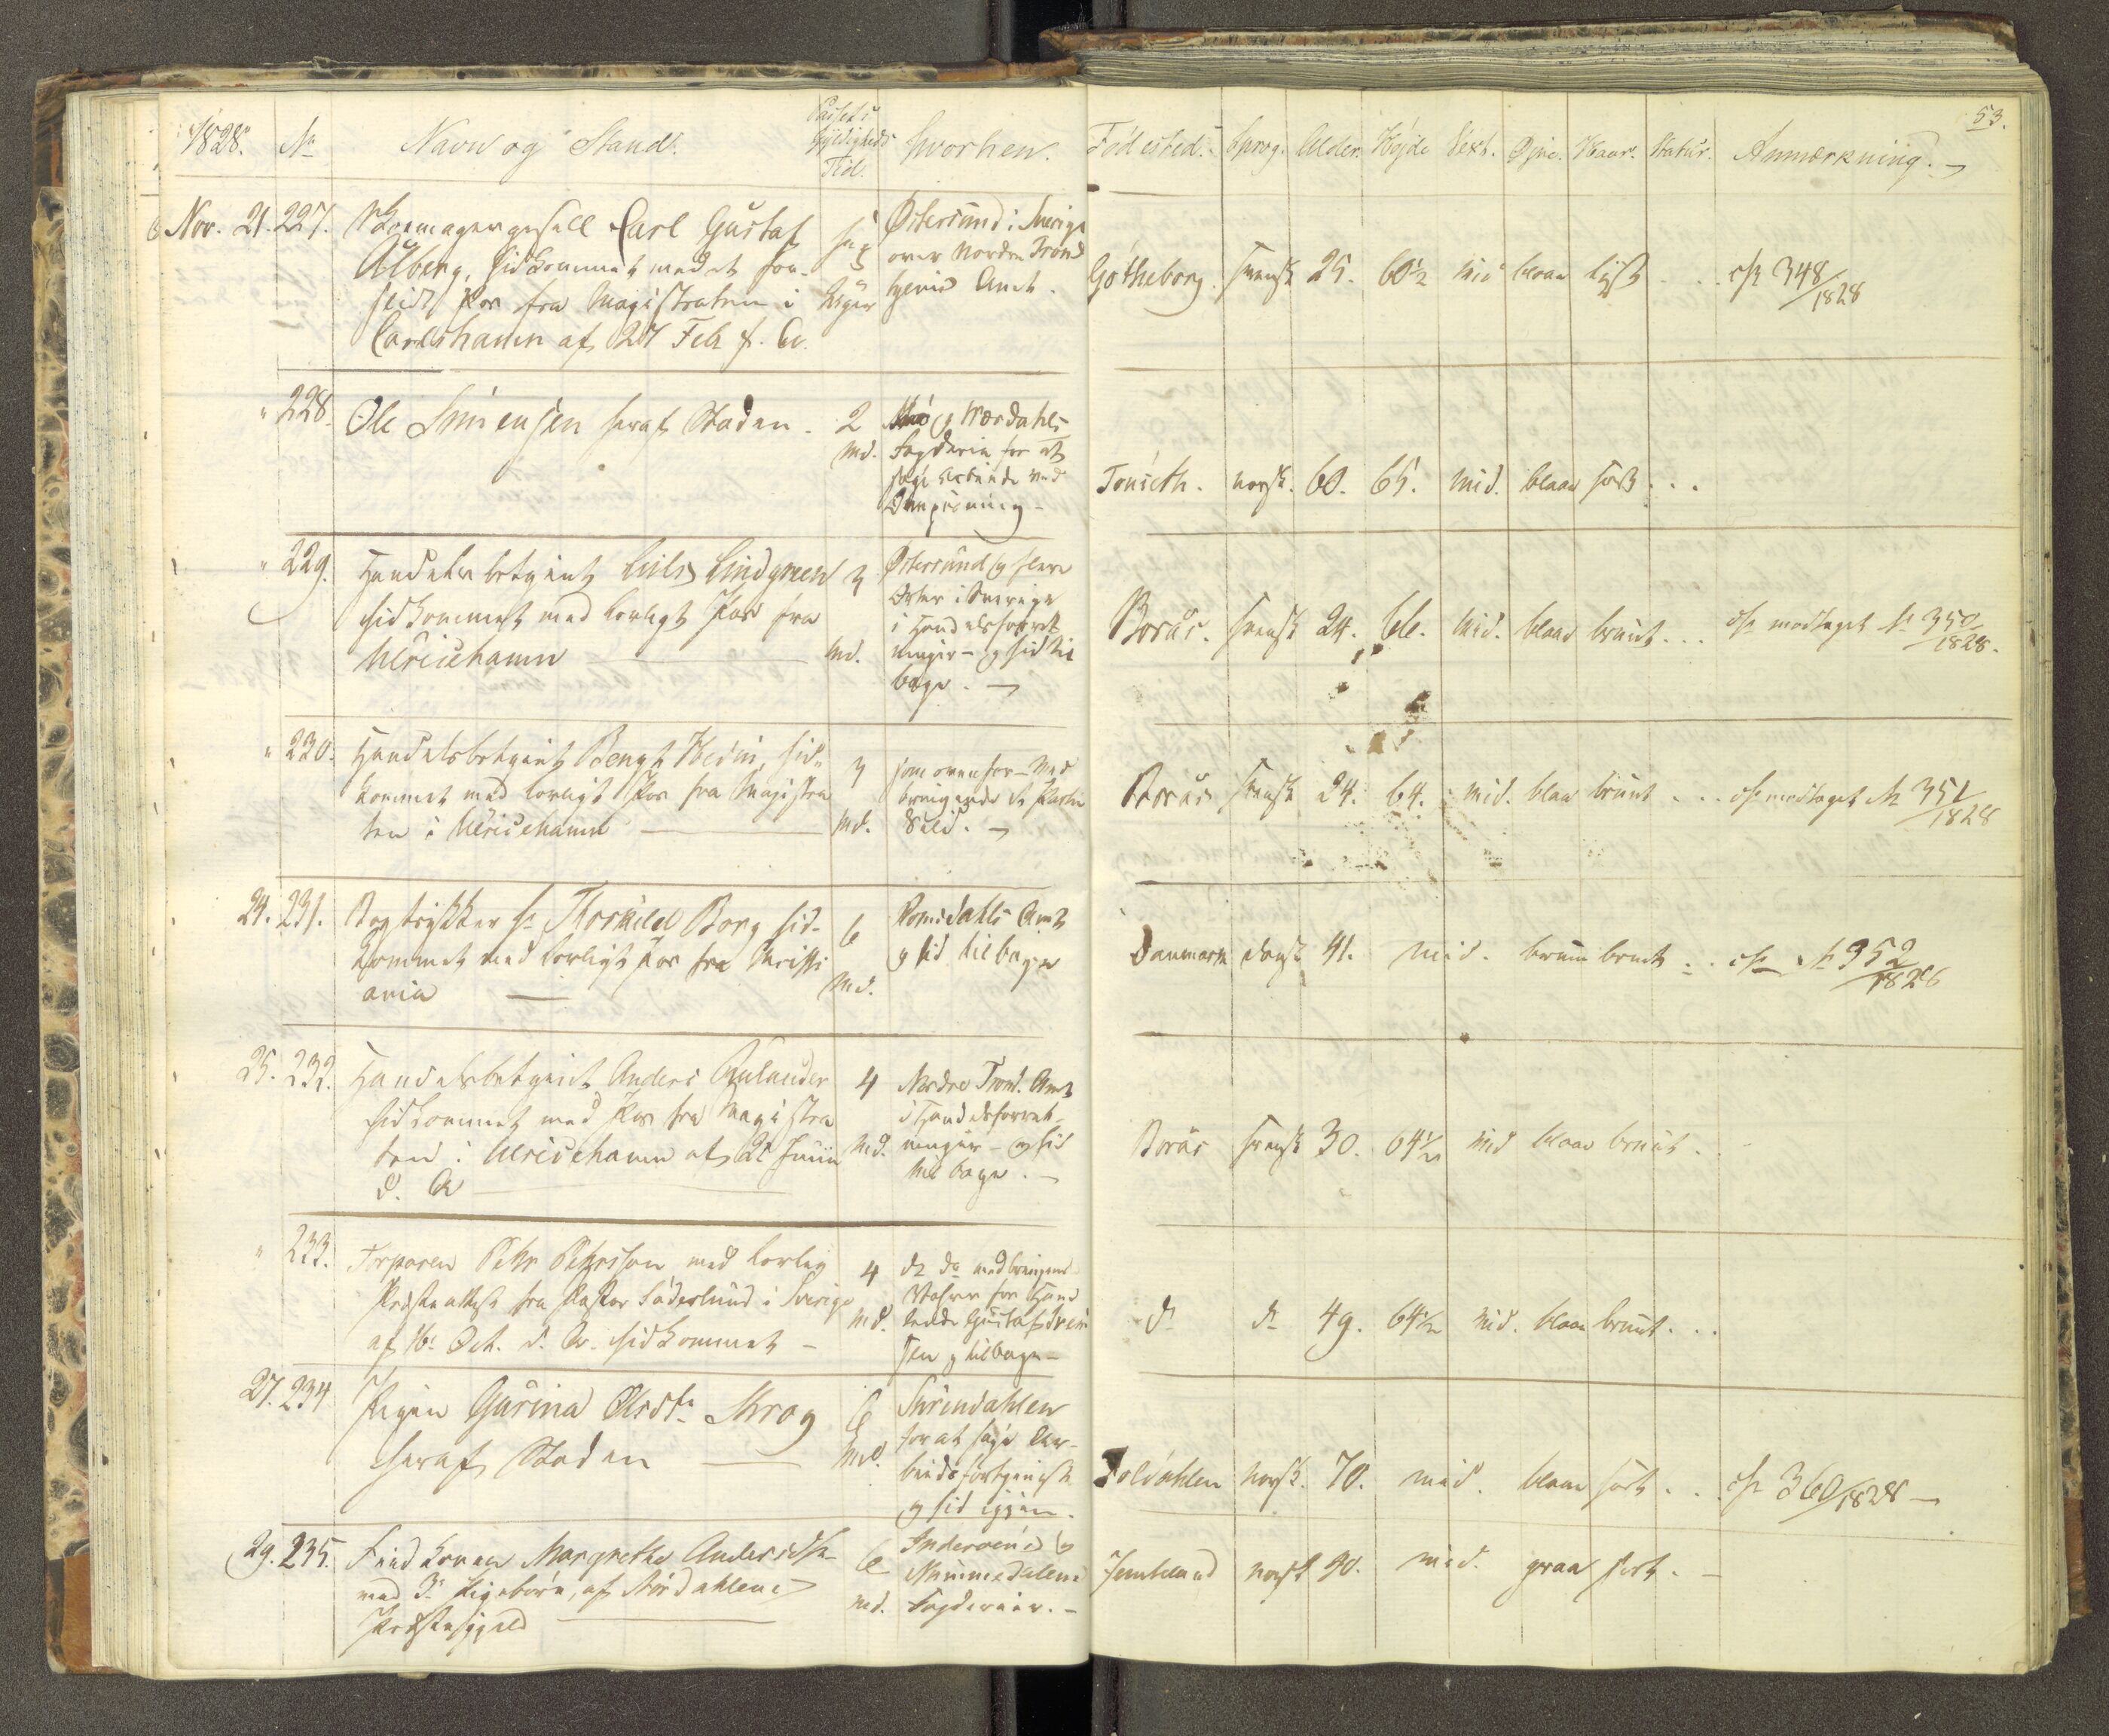 53.
1828. No Navn og Stand. Passets Gyldigheds Tid. hvorhen. Fødested. Sprog. Alder. Højde Vext. Øjne. Haar. Statur. Anmærkning.
Nov. 21. 227. Skomagergesell Carl Gustaf
Ahlberg, hidkommet med et for-
Pas fra Magistraten i
Carlshamn af 27 Feb f. A.
sex
Uger
Østersund i Sverige
over Nordre Trond
hjems Amt.
Götheborg. svensk 25. 60½ mid blaa lyst . . . 348/1828
" 228. Ole Simensen heraf Staden. 2
Md.
og Værdahls
Fogderie for at
søge Arbeide ved
Tønseth. norsk. 60. 65. mid. blaa sort . . .
" 229. Handelsbetjent Nils Lindgreen 3
hidkommet med lovligt Pas fra
Ulricehamn Md.
Østersund og flere
Steder i Sverige
i Handelsforret
ninger - og hid til
bage.
Borås. svensk 24. 66. mid. blaa brunt . . . modtaget No 350/1828.
" 230. Handelsbetjent Bengt Hedin, hid-
kommet med lovligt Pas fra Magistra
ten i Ulricehamn
3
Md.
som ovenfor - Med
bringende
Borås svensk 24. 64. mid. blaa brunt . . . modtaget No 351/1828
24. 231. Bogtrykker Hr Thorkild Borg hid-
kommet med lovligt Pas fra Christi
ania
6
Md.
Romsdahls Amt
og hid tilbage
Danmark dansk 41. mid. brune brunt . . No 352/1828
25. 232. Handelsbetjent Anders
hidkommet med Pas fra Magistra
ten i Ulricehamn af 21 Junii
d. A
4
Md.
Nordre Trond. Amt
i Handelsforret-
ninger - og hid
tilbage.
Borås svensk 30. 64½ mid blaa brunt .
" 233. Torparen Pehr Pehrsson med lovlig
Præsteattest fra Pastor Söderlund i Sverige
af 16 Oct. d. A. hidkommet -
4
Md.
do do medbringende
Vahrer for Hand
lende Gustaf
sen og tilbage -
do do 49. 64½ mid. blaa brunt . . .
27. 234 Pigen Gurina Olsdtr Krog
heraf Staden
6
Md.
Surendahlen
for at søge Ar-
beidsfortjeneste
og hid igjen.
Soldahlen norsk. 70. mid. blaa sort . . 360/1828
29. 235. Find konen Margrethe Andersdtr
med 3 Pigebørn, af Størdahlens
Præstegjeld
6
Md.
Inderøens og
Nummedalens
Fogderier. -
Jemteland norsk 40. mid. graa sort. -